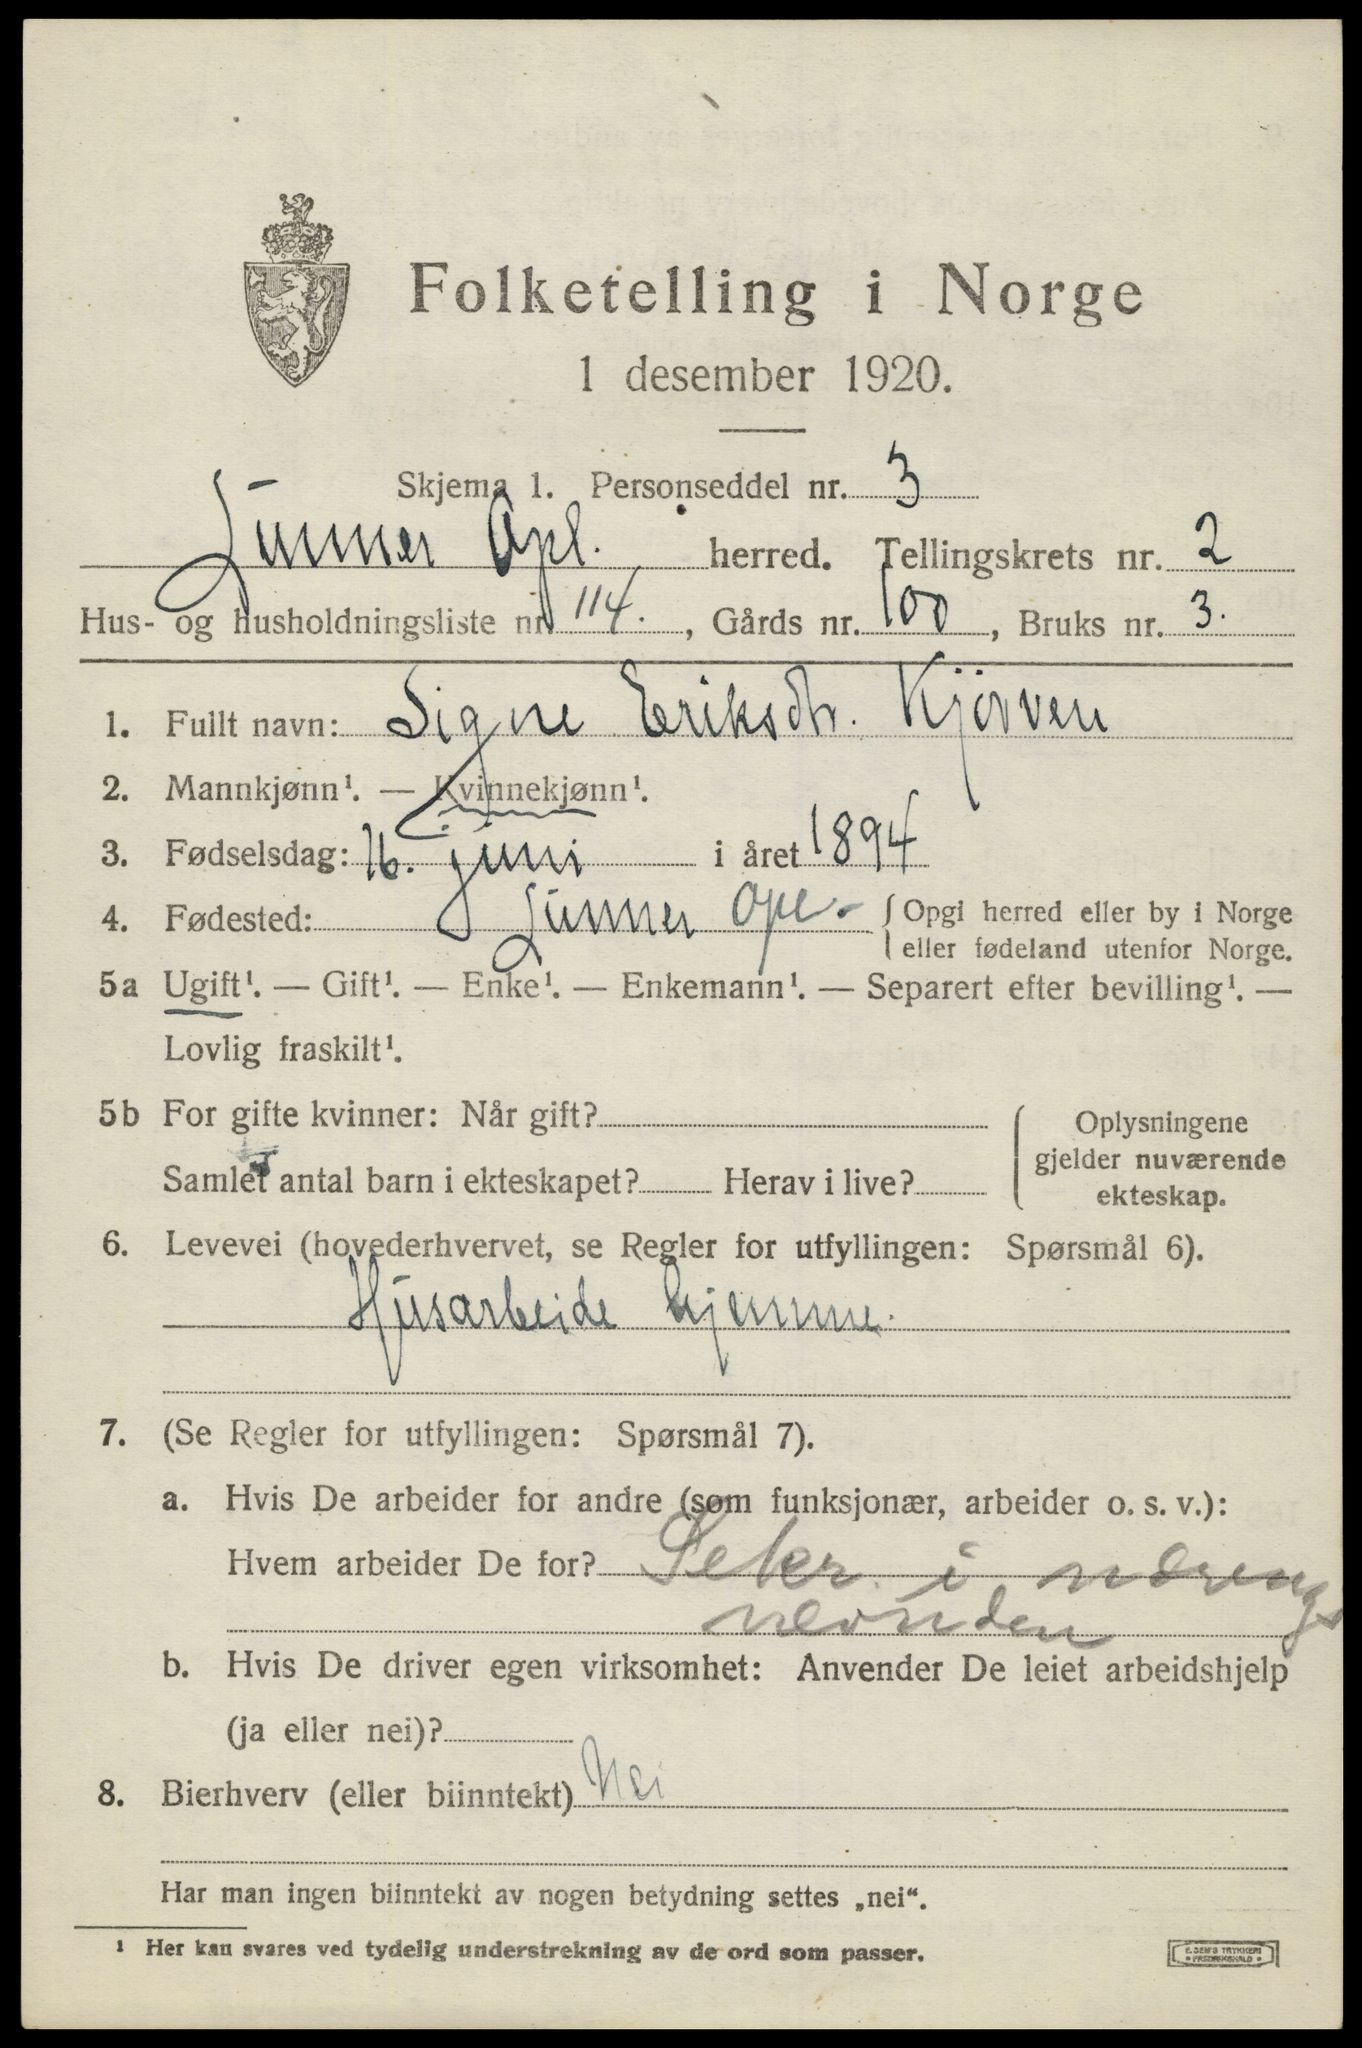 Folketelling i Norge
1 desember 1920.
Skjema 1. Personseddel nr. 3
Lunner Opl. herred. Tellingskrets nr. 2
Hus- og husholdningsliste nr. 114. , Gårds nr. 100 , Bruks nr. 3.
1. Fullt navn: Signe Eriksdtr. Kjørven
2. Mannkjønn¹. — Kvinnekjønn¹.
3. Fødselsdag: 16. juni i året 1894
4. Fødested: Lunner Opl. { Opgi herred eller by i Norge
eller fødeland utenfor Norge.
5a Ugift¹. — Gift¹. — Enke¹. — Enkemann¹. — Separert efter bevilling¹. —
Lovlig fraskilt¹.
5b For gifte kvinner: Når gift?
Samlet antal barn i ekteskapet? Herav i live?
{ Oplysningene
gjelder nuværende
ekteskap.
6. Levevei (hovederhvervet, se Regler for utfyllingen: Spørsmål 6).
Husarbeide hjemme.
7. (Se Regler for utfyllingen: Spørsmål 7).
a. Hvis De arbeider for andre (som funksjonær, arbeider o. s. v.):
Hvem arbeider De for? Sekr. i nærings
nevnden
b. Hvis De driver egen virksomhet: Anvender De leiet arbeidshjelp
(ja eller nei)?
8. Bierhverv (eller biinntekt) Nei
Har man ingen biinntekt av nogen betydning settes „nei“.
¹ Her kan svares ved tydelig understrekning av de ord som passer.
E. SEM'S TRYKKERI
• FREDRIKSHALD •